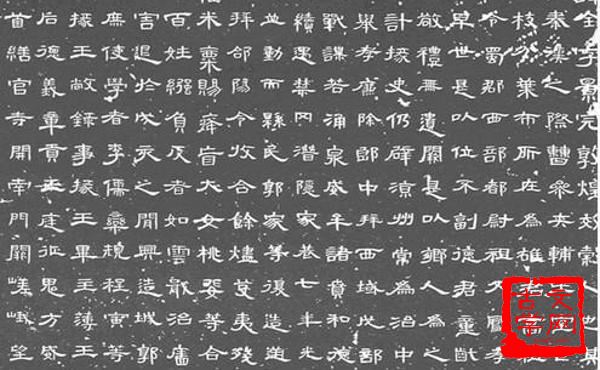 全字景完敦煌效穀人也其
秦漢之際曹參夾輔王
枝分葉布所在為雄
令蜀郡西部都尉祖父鳳孝
早世是以位不副德君童齔
敬禮無遺闕是以鄉人為之
計掾史仍辟涼州常為治中
舉孝廉除郎中拜西域戊部
戰謀若涌泉威牟諸賁和德
續遇禁冈潛隱家巷七年光
並動而縣民郭家等復造逆
拜郃陽令收合餘燼芟夷殘
米粟賜癃盲大女桃婓等合
百姓繈負反者如雲戢治廧
害退於戊亥之間興造城郭
庶使學者李儒欒規程寅等
掾王敞錄事掾王畢主薄王
后德義章貢王庭征鬼方威
首繕官寺開南門闕嵯峨望